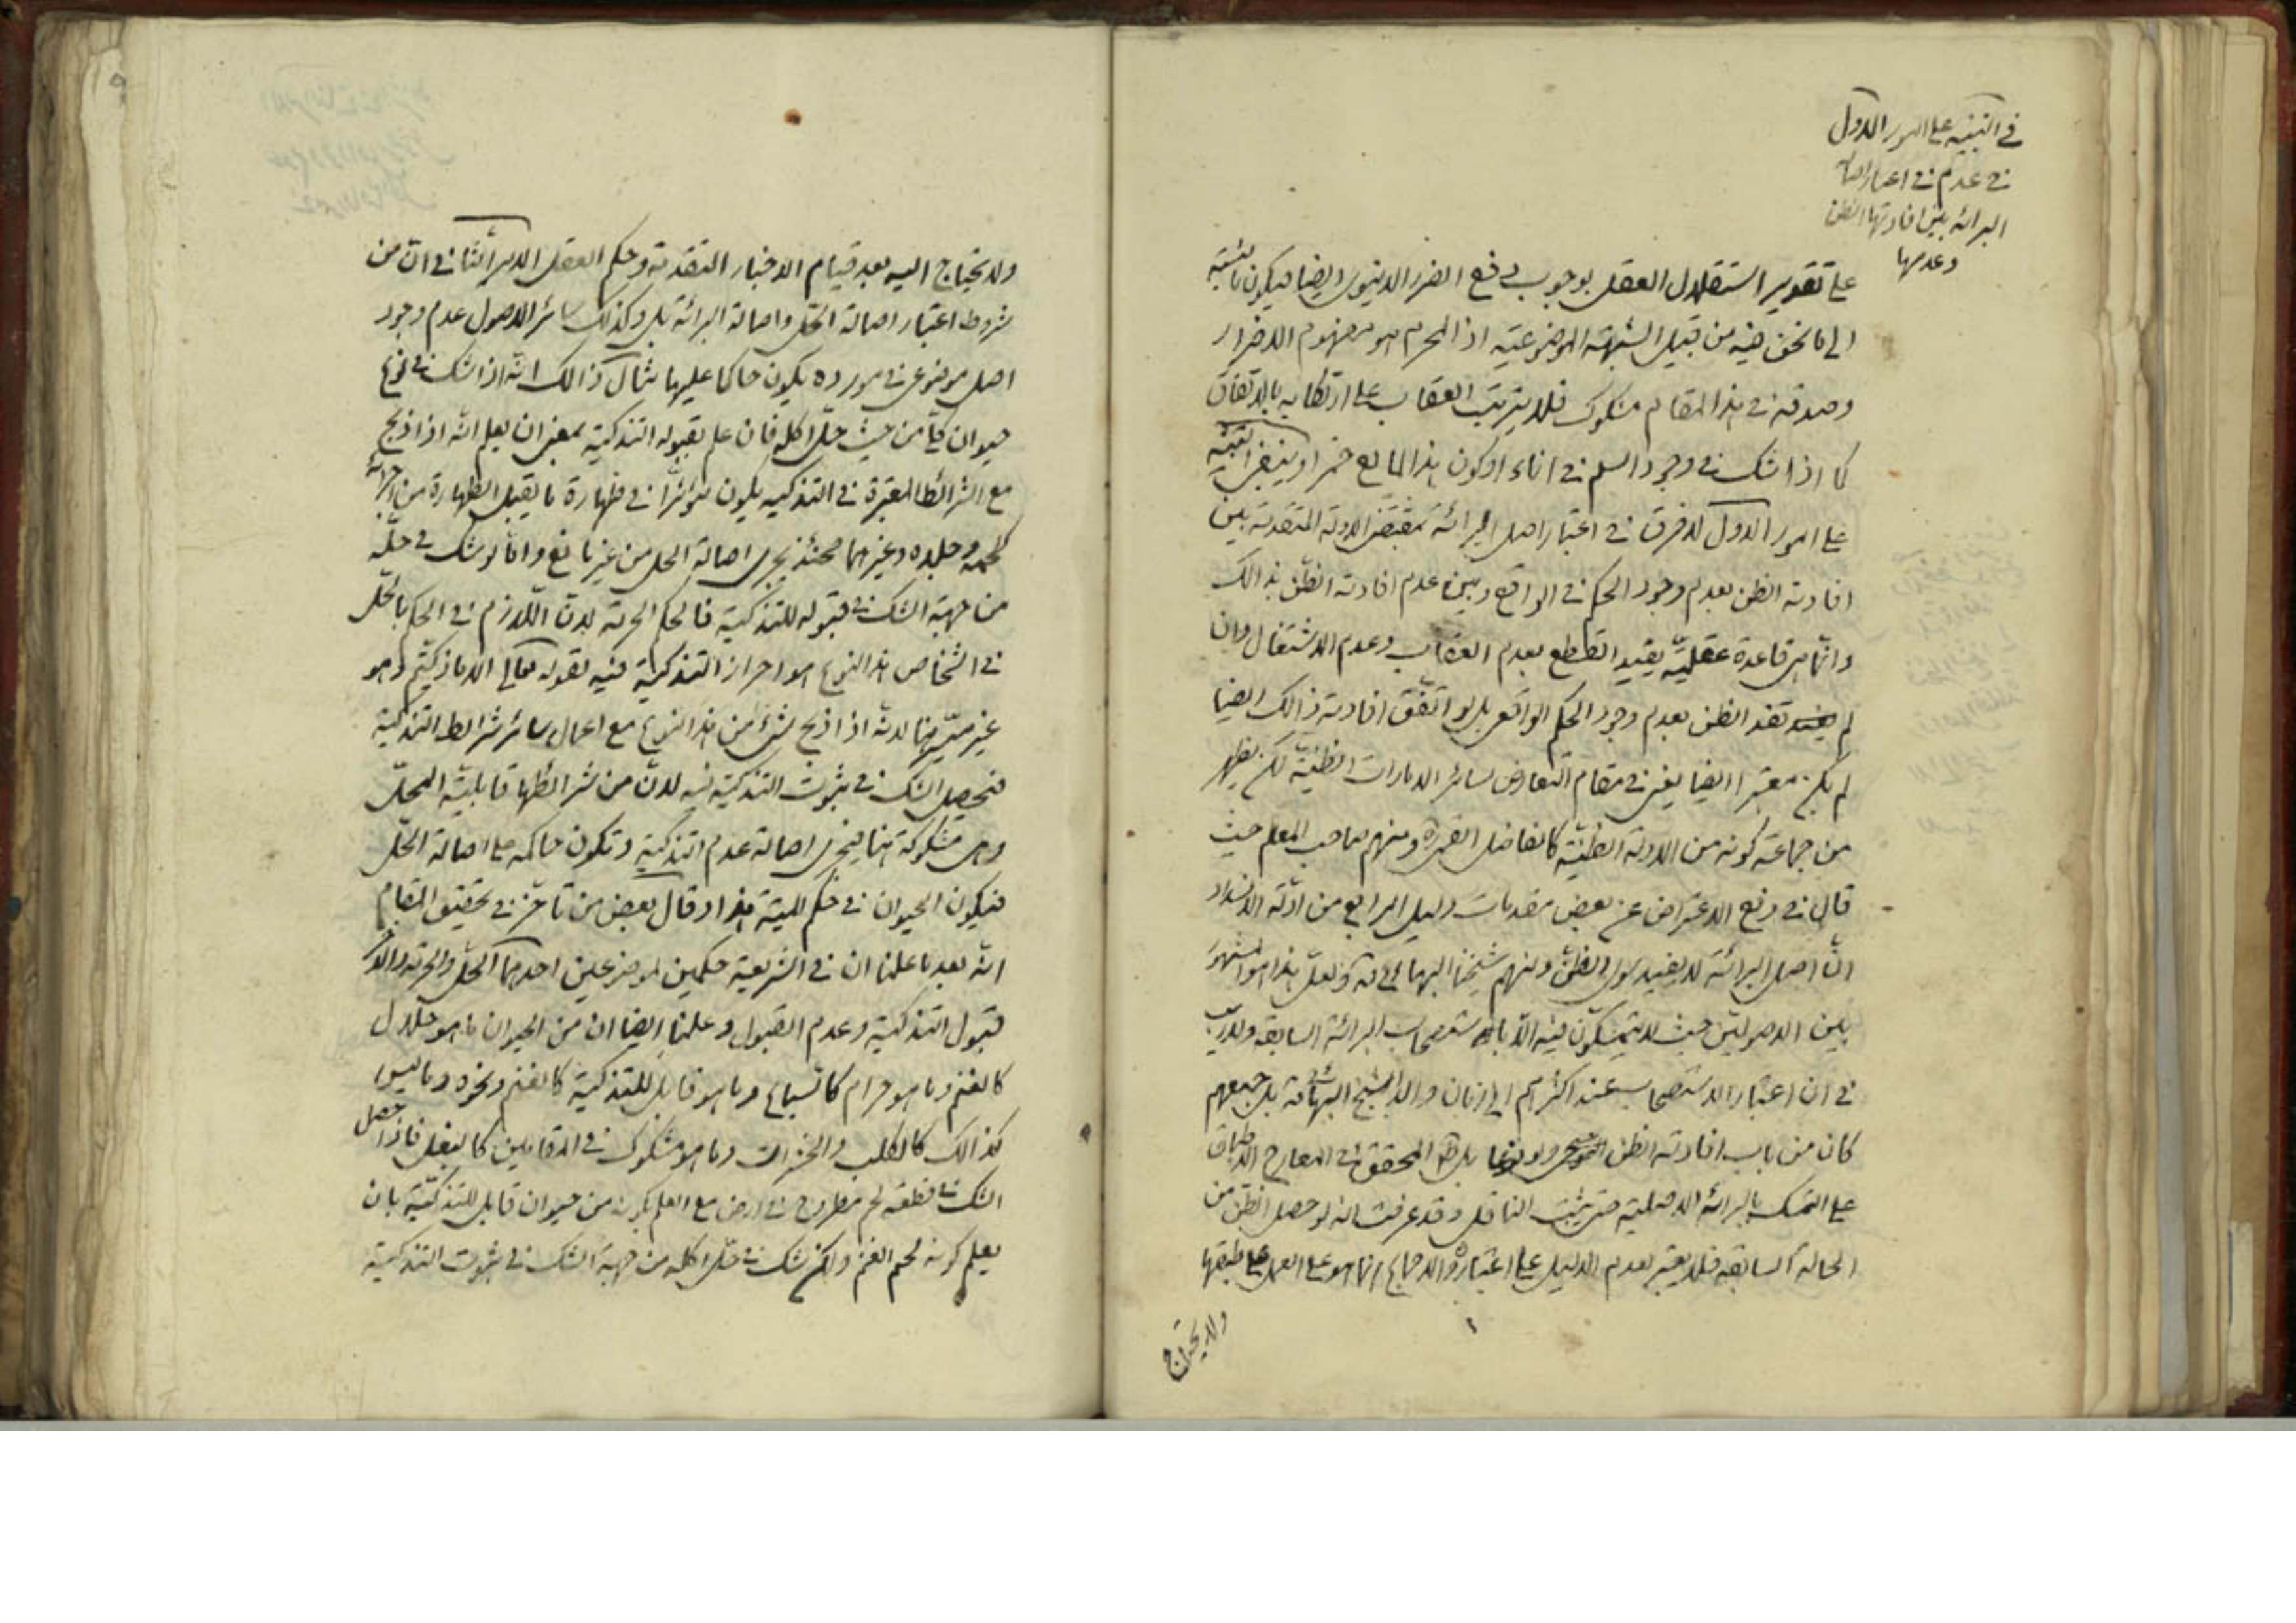 في التنبيه على امور الاول
في عدم في اعتبار اصالة
البرائة بين افادتها الظن
وعدمها
على تقدير استقلال العقل بوجوب دفع الضرر الدنيوى ايضا فيكون بالنسبة
الى ما نحن فيه من قبيل الشبهة الموضوعية اذ المحرم هو مفهوم الاضرار
وصدقه في هذا المقام مشكوك فلا يترتب العقاب على ارتكابه بالاتفاق
كما اذا شك في وجود السم في اناء او كون هذا المايع خمرا وينبغى التنبيه
على امور الاول لا فرق في اعتبار اصل البرائة بمقتضى الادلة المتقدمة بين
افادته الظن بعدم وجود الحكم في الواقع وبين عدم افادته الظن بذالك
وانما هى قاعدة عقلية يفيد القطع بعدم العقاب وعدم الاشتغال وان
لم تفد الظن بعدم وجود الحكم الواقعى بل لو اتفق افادته ذالك ايضا
لم يكن معتبرا ايضا يعنى في مقام التعارض لسائر الامارات الظنية لكن يظهر
من جماعة كونه من الادلة الظنية كالفاضل القمى ره ومنهم صاحب المعالم حيث
قال في دفع الاعتراض عن بعض مقدمات دليل الرابع من ادلة الانسداد
ان اصل البرائة لا يفيد سوى الظن ومنهم شيخنا البهائى ولعل هذا هو المشهور
بين الاصوليين حيث لا يتمسكون فيه الا باستصحاب البرائة السابقة ولا ريب
في ان اعتبار الاستصحاب عند اكثرهم الى زمان والد الشيخ البهائى بل جميعهم
كان من باب افادته الظن ولو نوعا بل المحقق في المعارج الاطباق
على التمسك بالبرائة الاصلية حتى يثبت الناقل وقد عرفت انه لو حصل الظن من
الحالة السابقة فلا يعتبر لعدم الدليل على اعتباره والاجماع انما هو على العمل على طبقها
ولا يحتاج
ولا يحتاج اليه بعد قيام الاخبار المتقدمة وحكم العقل الامر الثاني ان من
شروط اعتبار اصالة الحل واصالة البرائة بل وكذلك سائر الاصول عدم وجود
اصل موضوعى في مورده يكون حاكما عليها مثال ذالك انه اذا شك في نوع
حيوان من حيث حل اكله فان علم بقبوله التذكية بمعنى ان يعلم انه اذا ذبح
مع الشرائط المعتبرة في التذكيه يكون مؤثرا في طهارة ما يقبل الطهارة من اجزائه
لحمه وجلده وغيرهما فحينئذ يجرى اصالة الحل من غير مانع واما لو شك في حله
من جهة الشك في قبوله للتذكية فالحكم الحرمة لان اللازم في الحكم بالحل
في اشخاص هذا النوع هو احراز التذكية فيه لقوله تعالى الا ما ذكيتم وهو
غير متيسر هنا لانه اذا ذبح شئ من هذا النوع مع اعمال سائر شرائط التذكية
فيحصل الشك في ثبوت التذكية فيه لان من شرائطها قابلية المحل
وهى مشكوكة هنا فيجرى اصالة عدم التذكية وتكون حاكمه على اصالة الحل
فيكون الحيوان في حكم الميتة هذا وقال بعض من تأخر في تحقيق المقام
انه بعد ما علمنا ان في الشريعة حكمين لموضوعين احدهما الحل والحرمة والآخر
قبول التذكية وعدم القبول وعلمنا ايضا ان من الحيوان ما هو حلال
كالغنم وما هو حرام كالسباع وما هو قابل للتذكية كالغنم ونحوه وما ليس
كذالك كالكلب والحشرات وما هو مشكوك في المقامين كالبغل فاذا حصل
الشك في قطعة لحم مطروح في ارض مع العلم بكونه من حيوان قابل للتذكية بان
يعلم كونه لحم الغنم ولكن شك في حل اكله من جهة الشك في ثبوت التذكية